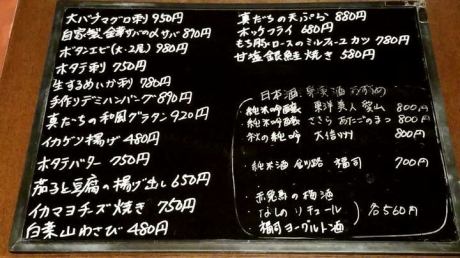 大バチマグロ刺 950円
自家製金華サバの〆サバ 890円
ボタンエビ(大・2尾) 980円
ホタテ刺 750円
生するめいか刺 780円
手作りデミハンバーグ 890円
真だちの和風グラタン 920円
イカゲソ揚げ 480円
ホタテバター 750円
茄子と豆腐の揚げ出し 650円
イカマヨチーズ焼き 750円
白菜山わさび 480円
真だちの天ぷら 880円
ホッケフライ 680円
もち豚ロースのミルフィーユカツ 780円
甘塩銀鮭焼き 580円
日本酒、果実酒おすすめ
・純米吟醸 東洋美人 800円
・純米吟醸 ささら おたごのまつ 800円
・秋の純吟 大信州 800円
・純米酒 福司 700円
・赤兎馬の梅酒
・なしのリキュール 各560円
・福司ヨーグルト酒